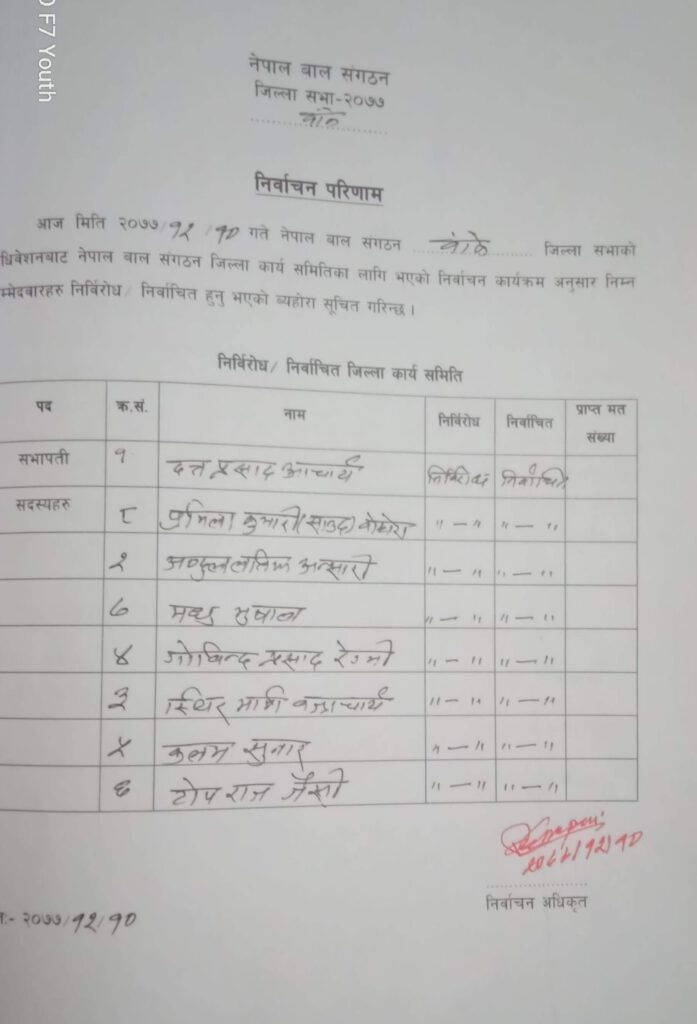 F7 Youth
नेपाल बाल संगठन
जिल्ला सभा-२०७७
बाँके
निर्वाचन परिणाम
आज मिति २०७७/१२/१० गते नेपाल बाल संगठन बाँके जिल्ला सभाको
धिवेशनबाट नेपाल बाल संगठन जिल्ला कार्य समितिका लागि भएको निर्वाचन कार्यक्रम अनुसार निम्न
म्मेदवारहरु निर्विरोध/ निर्वाचित हुनु भएको व्यहोरा सूचित गरिन्छ ।
निर्विरोध/ निर्वाचित जिल्ला कार्य समिति
पद क्र.सं. नाम निर्विरोध निर्वाचित प्राप्त मत संख्या
सभापती १ दत्त प्रसाद आचार्य निर्विरोध निर्वाचित
सदस्यहरु ८ प्रमिला कुमारी (साउद) " — " " — "
२ अब्दुल लतिफ अन्सारी " — " " — "
७ मधु भुषाल " — " " — "
४ गोविन्द प्रसाद रेग्मी " — " " — "
३ स्थिर मणि बज्राचार्य " — " " — "
५ कलम सुनार " — " " — "
६ टोप राज जैसी " — " " — "
२०७७/१२/१०
निर्वाचन अधिकृत
:- २०७७/१२/१०